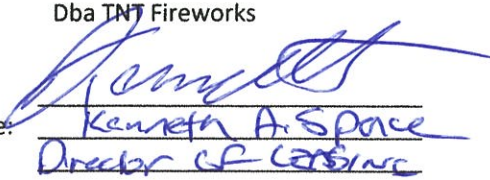 Dba TNT Fireworks
e:
Kenneth A. Spence
Director of Leasing